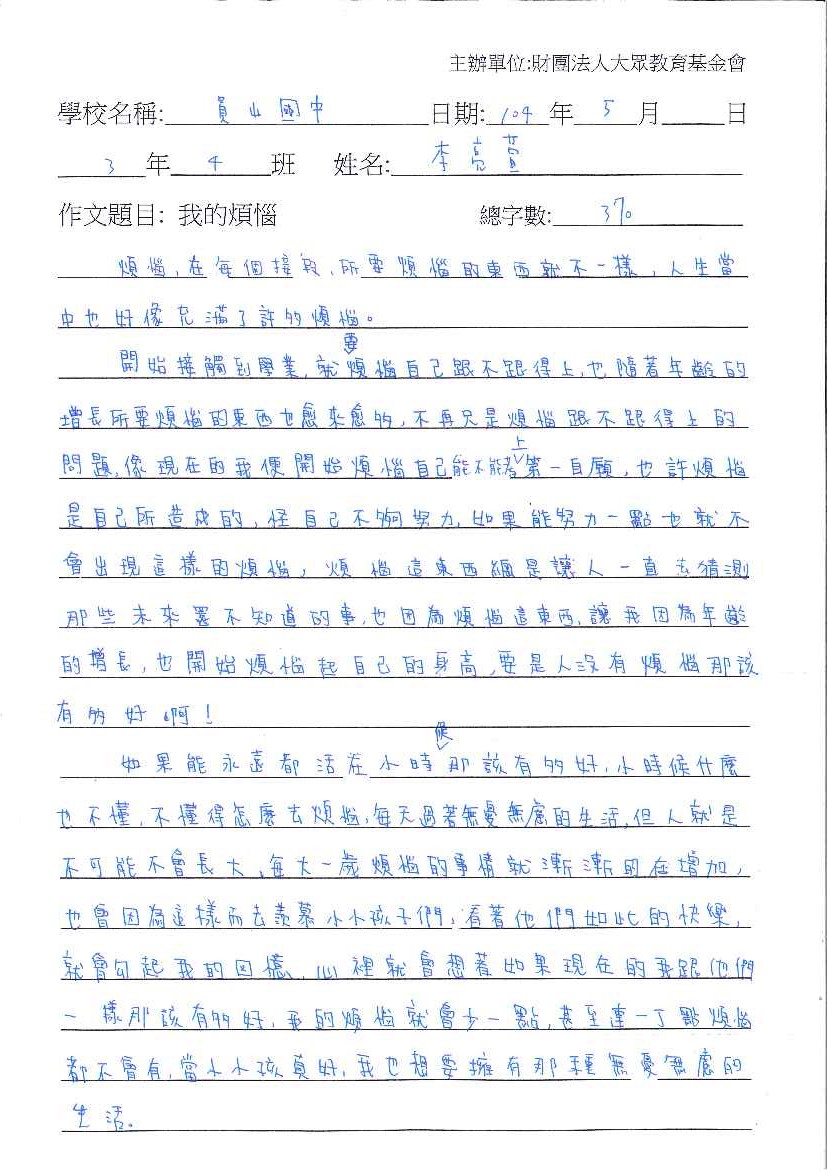 主辦單位:財團法人大眾教育基金會
學校名稱: 員山國中 日期: 104 年 5 月 日
3 年 4 班 姓名: 李亮萱
作文題目: 我的煩惱 總字數: 370
煩惱,在每個接段,所要煩惱的東西就不一樣,人生當
中也好像充滿了許多煩惱。
開始接觸到學業,就要煩惱自己跟不跟得上,也隨著年齡的
增長所要煩惱的東西也愈來愈多,不再只是煩惱跟不跟得上的
問題,像現在的我便開始煩惱自己能不能考上第一自願,也許煩惱
是自己所造成的,怪自己不夠努力,如果能努力一點也就不
會出現這樣的煩惱,煩惱這東西總是讓人一直去猜測
那些未來還不知道的事,也因為煩惱這東西,讓我因為年齡
的增長,也開始煩惱起自己的身高,要是人沒有煩惱那該
有多好啊!
如果能永遠都活在小時候那該有多好,小時候什麼
也不懂,不懂得怎麼去煩惱,每天過著無憂無慮的生活,但人就是
不可能不會長大,每大一歲煩惱的事情就漸漸的在增加,
也會因為這樣而去羨慕小小孩子們,看著他們如此的快樂,
就會勾起我的回憶,心裡就會想著如果現在的我跟他們
一樣那該有多好,我的煩惱就會少一點,甚至連一丁點煩惱
都不會有,當小小孩真好,我也想要擁有那種無憂無慮的
生活。